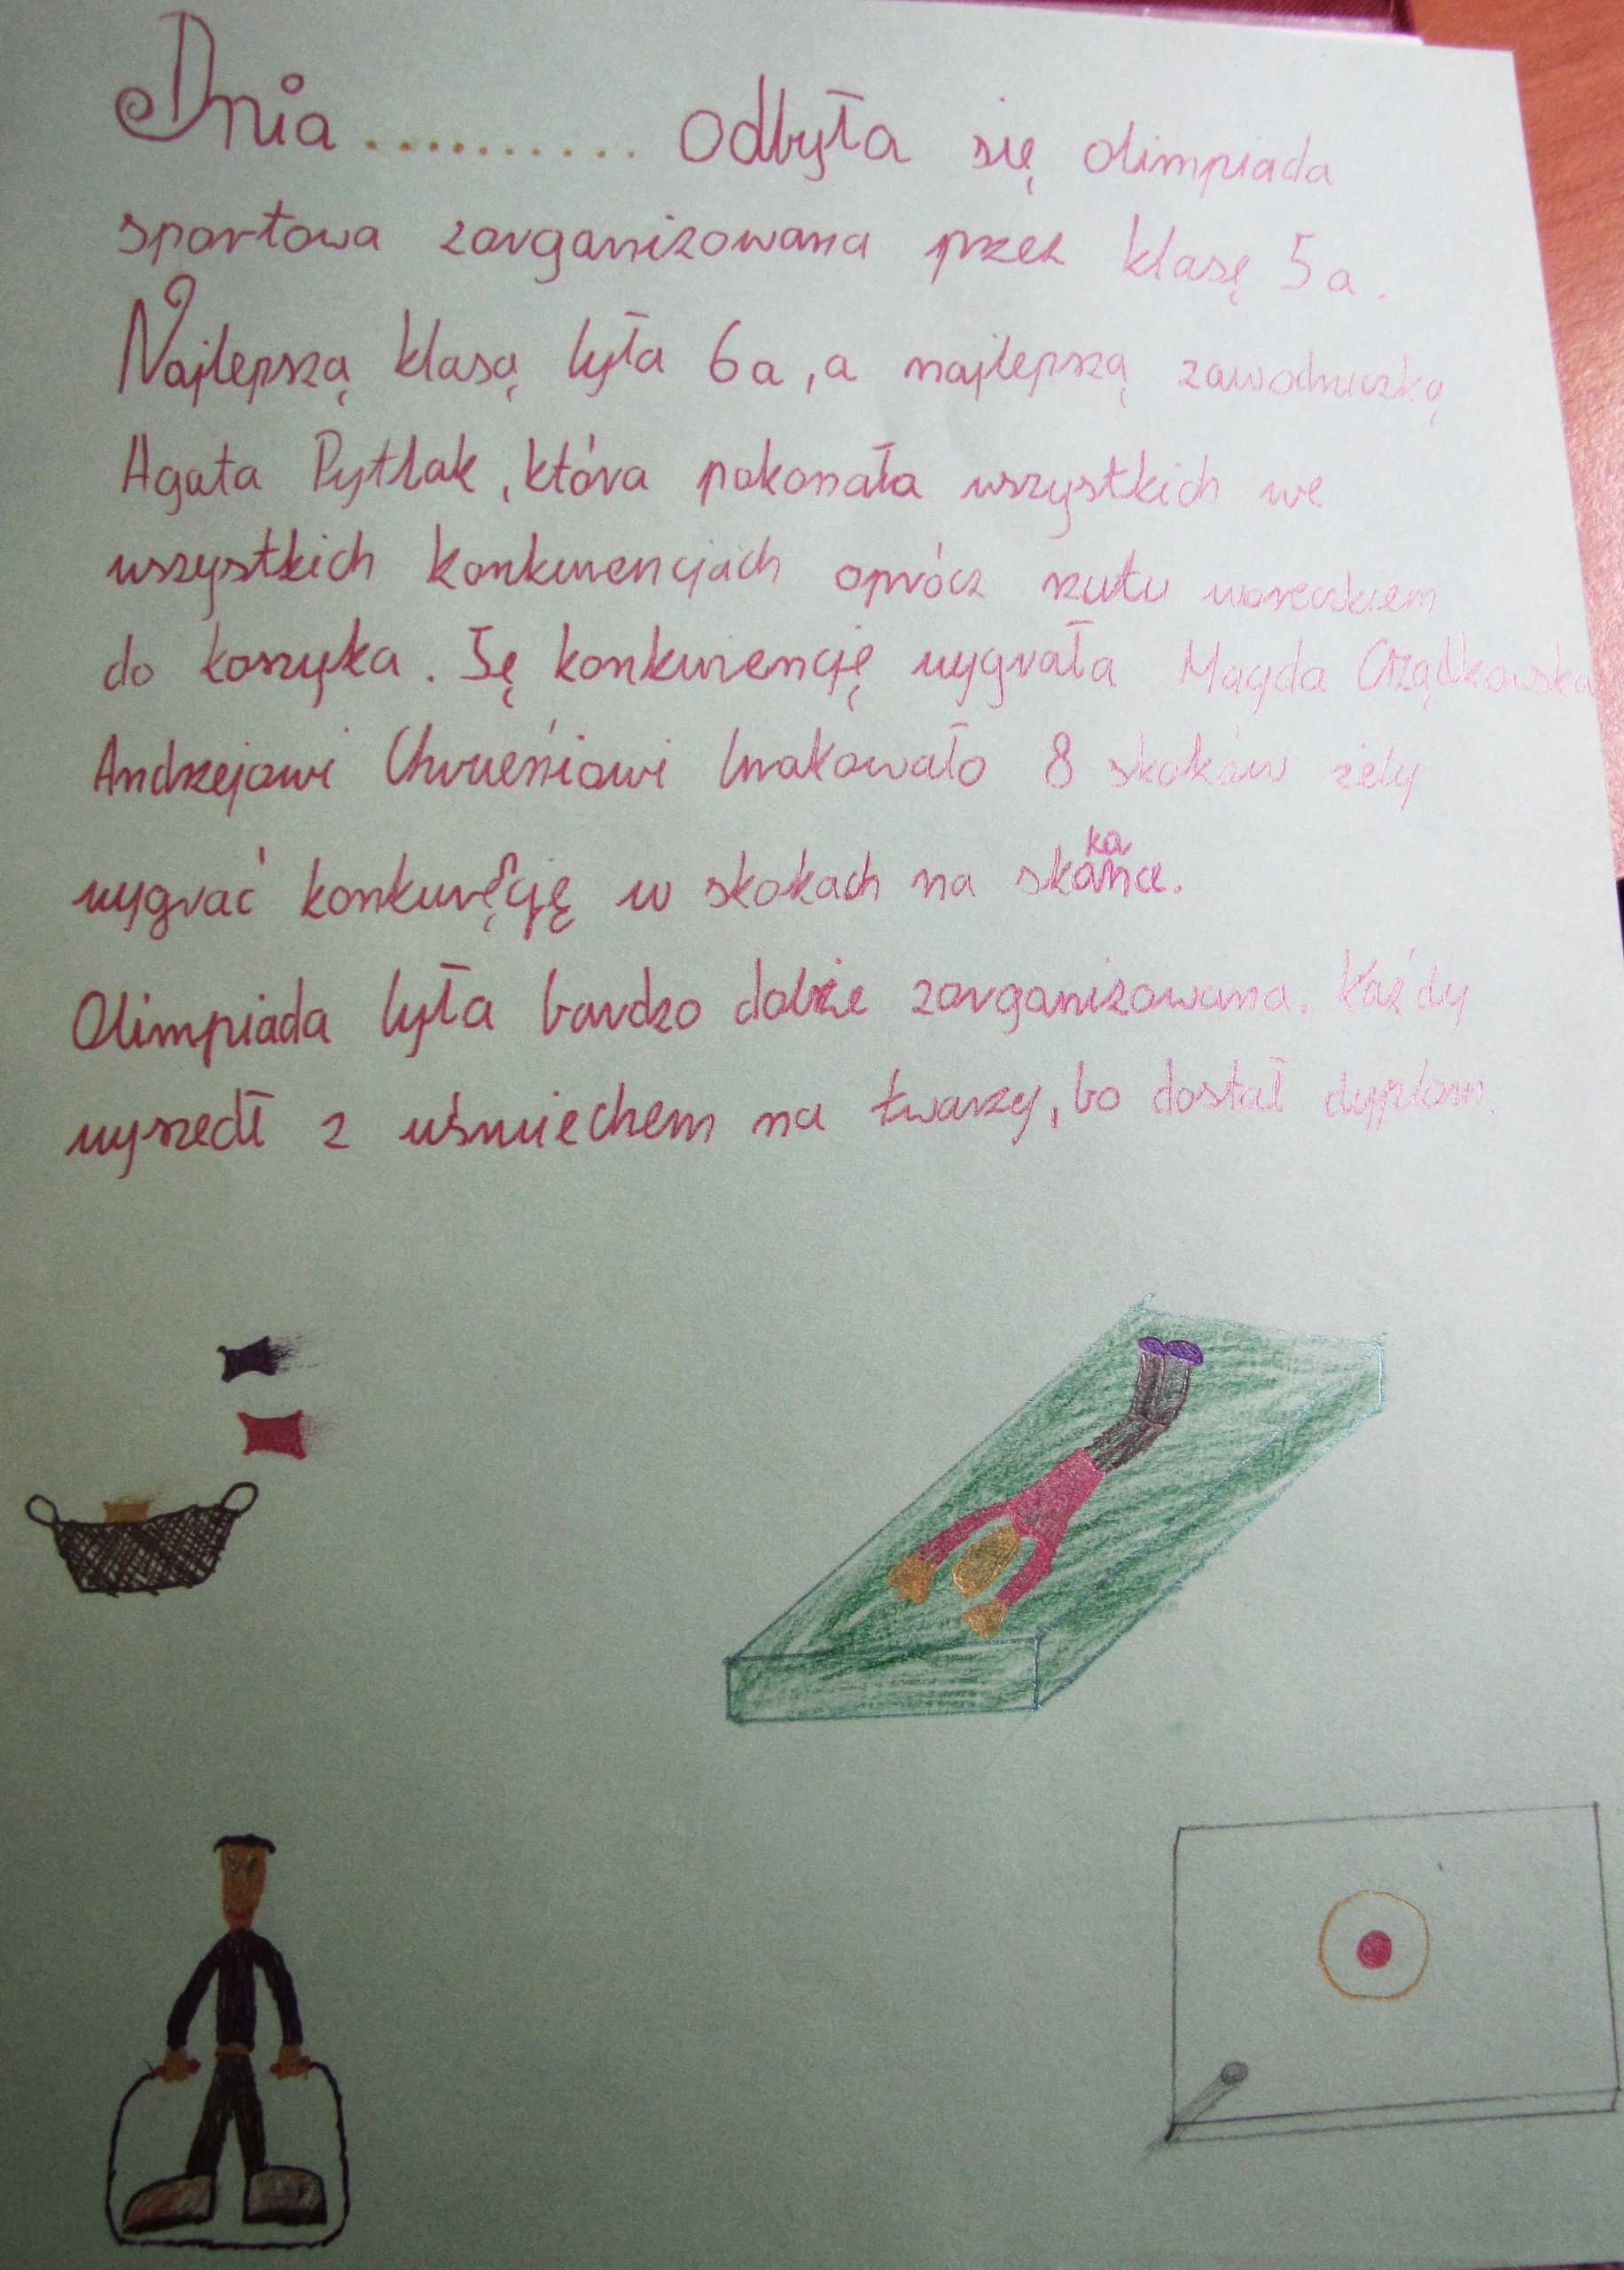 Dnia .......... odbyła się olimpiada
sportowa zorganizowana przez klasę 5a.
Najlepszą klasą była 6a, a najlepszą zawodniczką
Agata Pytlak, która pokonała wszystkich we
wszystkich konkurencjach oprócz rzutu woreczkiem
do koszyka. Tę konkurencję wygrała Magda
Andrzejowi brakowało 8 skoków żeby
wygrać konkuręcję w skokach na skakance.
Olimpiada była bardzo dobrze zorganizowana. Każdy
wyszedł z uśmiechem na twarzy, bo dostał dyplom.